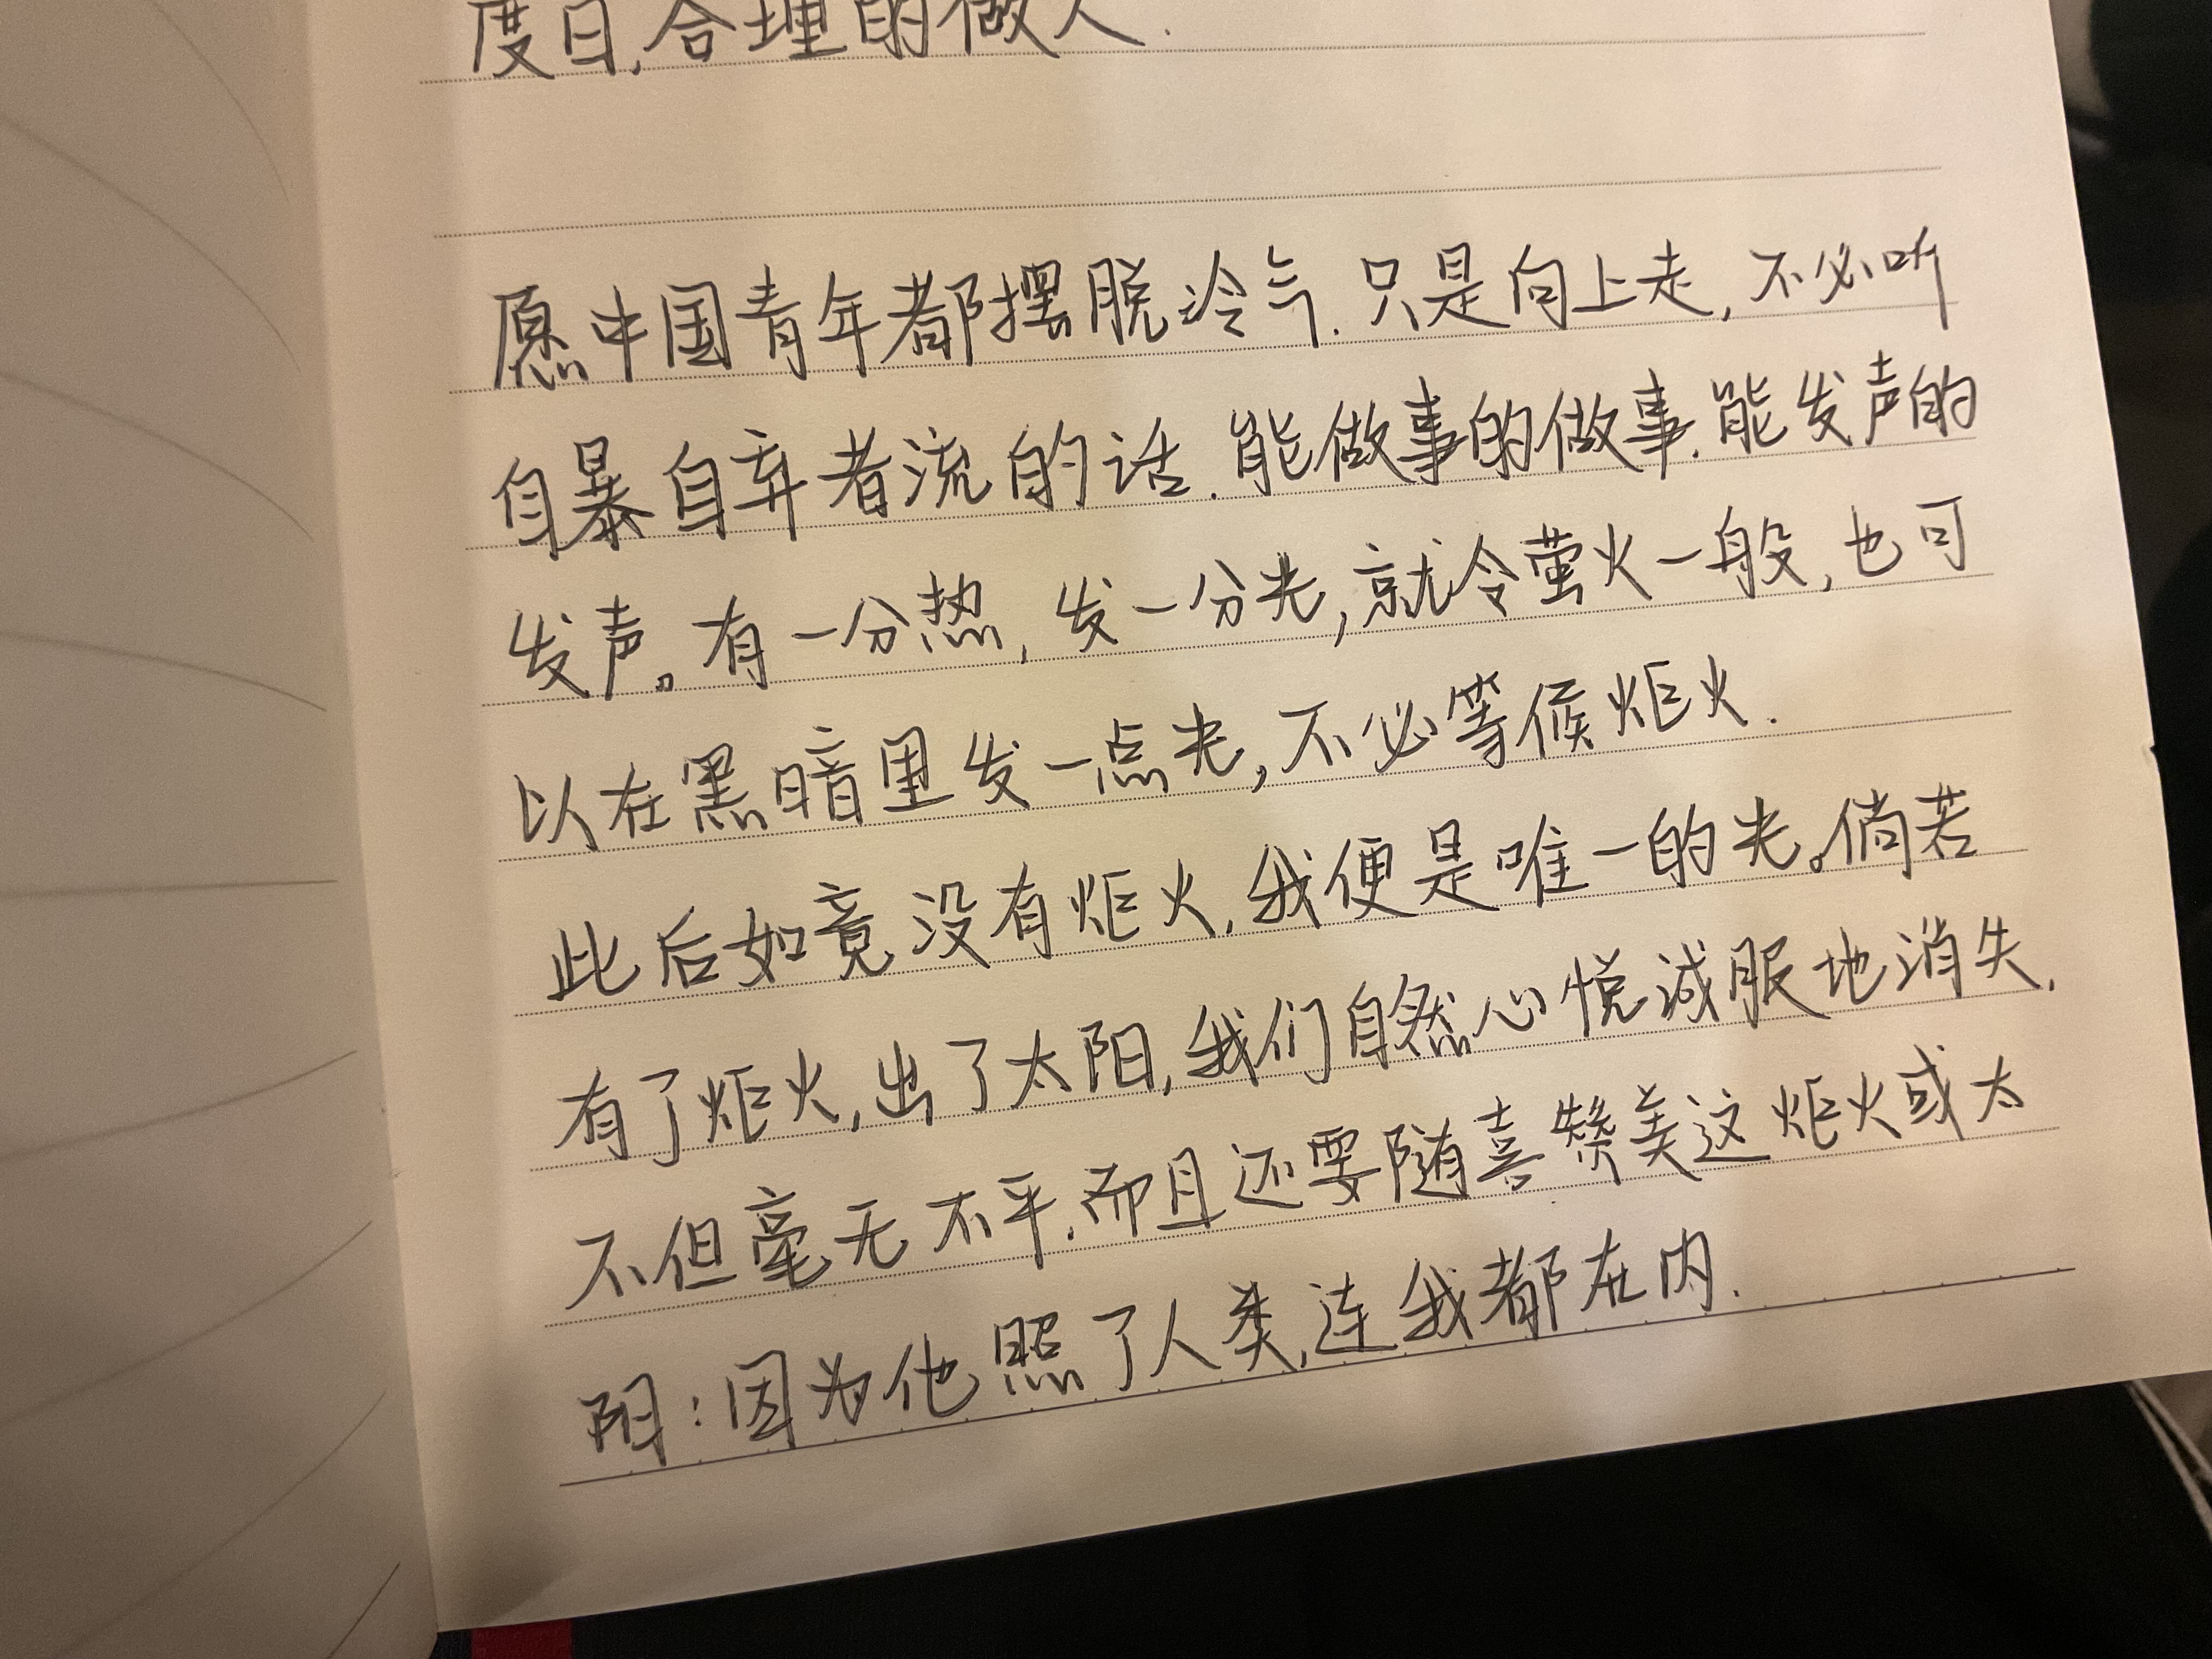 度日,合理的做人.
愿中国青年都摆脱冷气.只是向上走,不必听
自暴自弃者流的话.能做事的做事.能发声的
发声。有一分热,发一分光,就令萤火一般,也可
以在黑暗里发一点光,不必等候炬火.
此后如竟没有炬火,我便是唯一的光。倘若
有了炬火,出了太阳,我们自然心悦诚服地消失.
不但毫无不平.而且还要随喜赞美这炬火或太
阳:因为他照了人类,连我都在内.